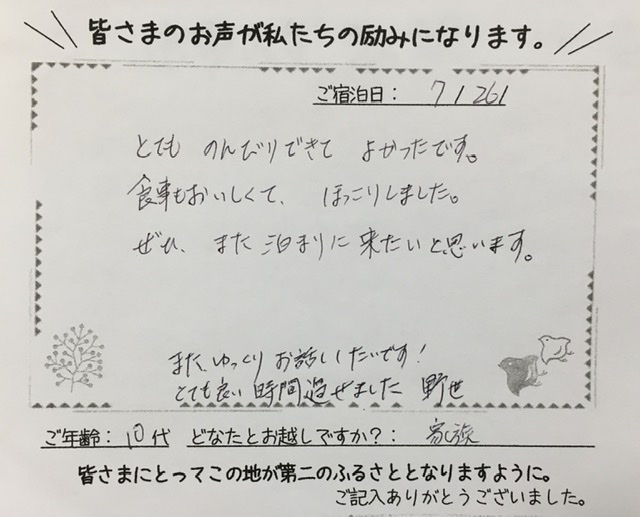 皆さまのお声が私たちの励みになります。
ご宿泊日： 7/26/
とても のんびりできて よかったです。
食事もおいしくて、 ほっこりしました。
ぜひ、また 泊まりに 来たいと思います。
また、ゆっくり お話ししたいです！
とても良い 時間 過せました 野世
ご年齢： 10代 どなたとお越しですか？： 家族
皆さまにとってこの地が第二のふるさととなりますように。
ご記入ありがとうございました。